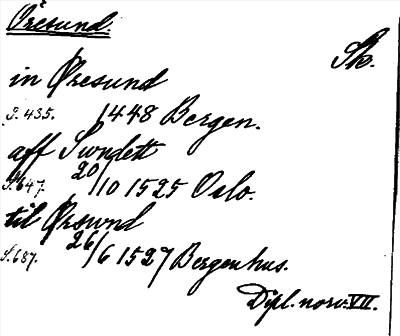 Øresund.
Sk.
in Øresund
S. 435. 1448 Bergen.
aff Swndett
S. 647. 20/10 1525 Oslo.
til Ørswnd
S. 687. 26/6 1527 Bergenhus.
Dipl. norv. VII.